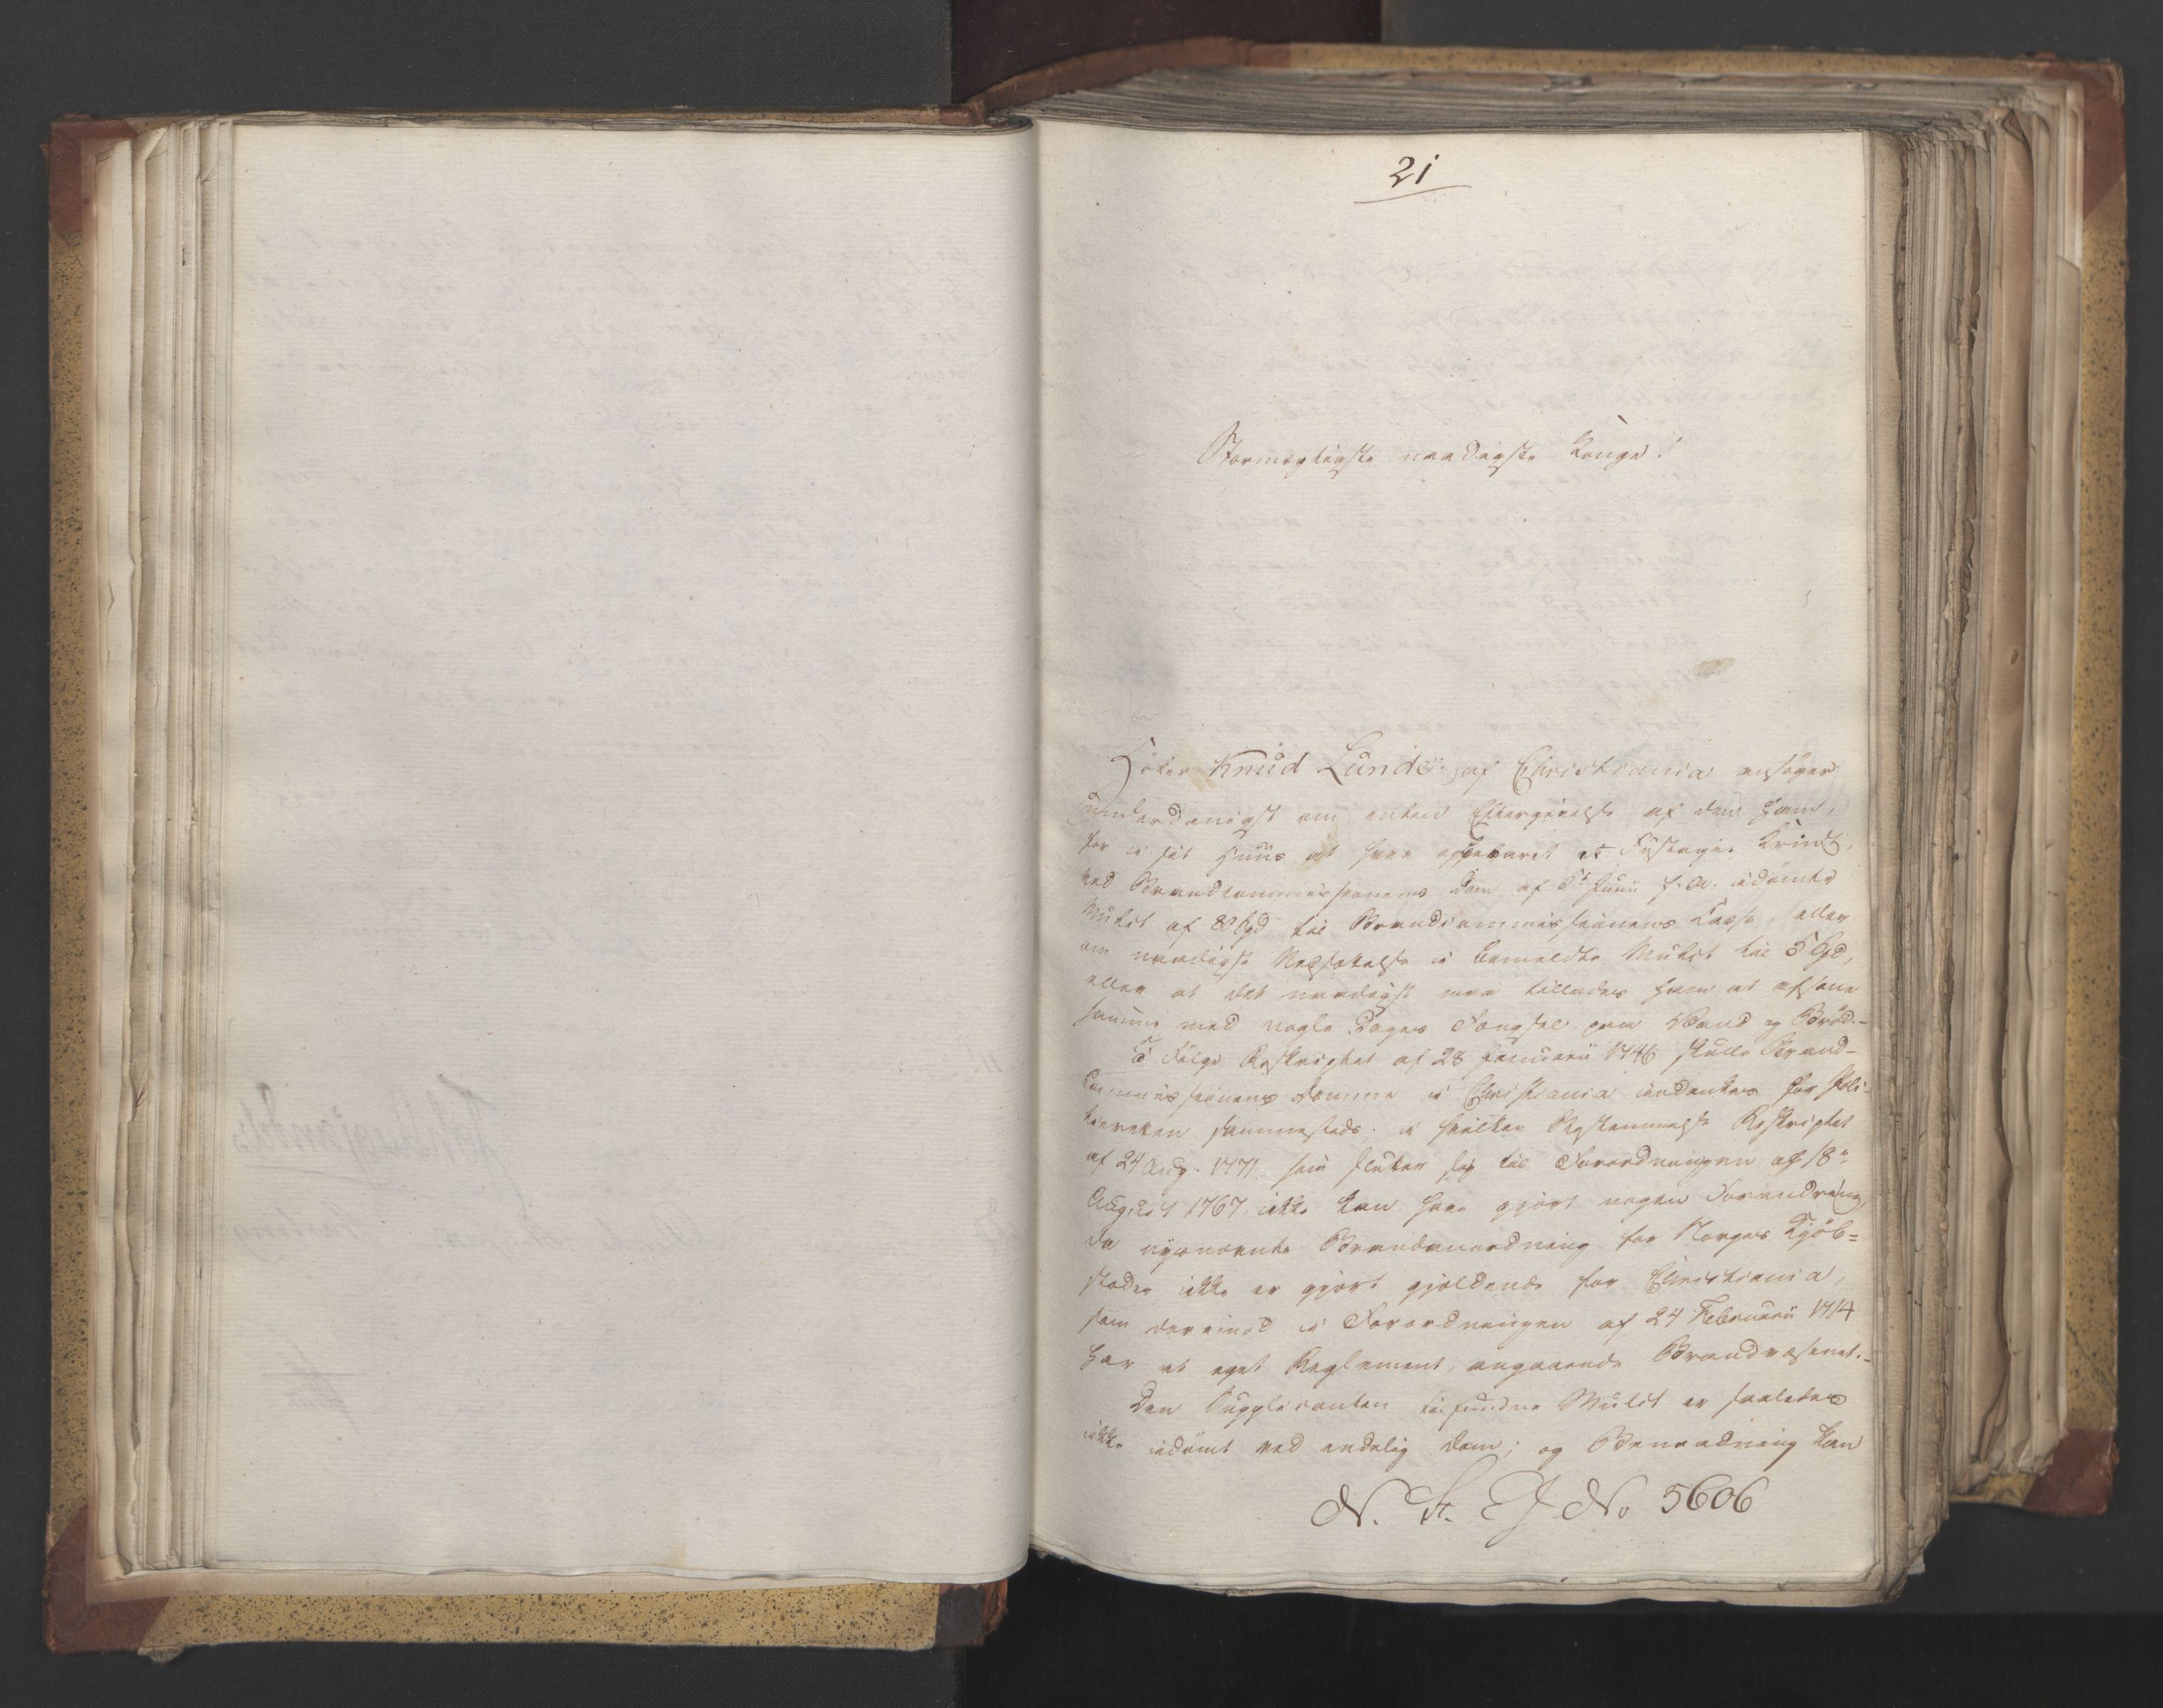 21
Stormægtigste naadigste Konge!
Höker Knud Lunde af Christiania ansöger
underdanigst om enten Eftergivelse af den ham,
for i sit Huus at have opbevaret et Fustagie Krudt,
ved Brandcommissionens Dom af 5te Junii f. A. idömte
Mulct af 80 Spd til Brandcommissionens Casse, eller
om naadigst Nedsættelse i bemeldte Mulct til 5 Spd,
eller at det naadigst maa tillades ham at afsone
samme med nogle Dages Fængsel paa Vand og Bröd.-
I Fölge Rescriptet af 28 Januarii 1746 skulle Brand-
Commissionens Domme i Christiania indankes for Poli-
sammesteds; i hvilken Bestemmelse Rescriptet
af 24 Aug. 1771 som slutter sig til Forordningen af 18n
August 1767 ikke kan have gjort nogen Forandring,
da nysnævnte Brandanordning for Norges Kjöb=
stæder ikke er gjort gjældende for Christiania,
som derimod i Forordningen af 24 Februarii 1714
har et eget Reglement, angaaende Brandvæsenet.-
Den Supplicanten tilfundne Mulct er saaledes
ikke idömt ved endelig Dom; og Benaadning kan
N. St. J No 5606